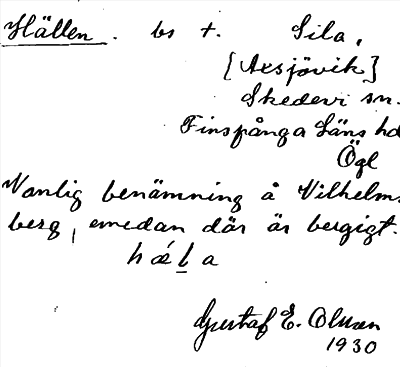 Hällen. bs t. Sila,
[Axsjövik]
Skedevi sn.
Finspånga Läns hd
Ögl
Vanlig benämning å Vilhelms-
berg, emedan där är bergigt.
hǽla
Gustaf E. Olsson
1930